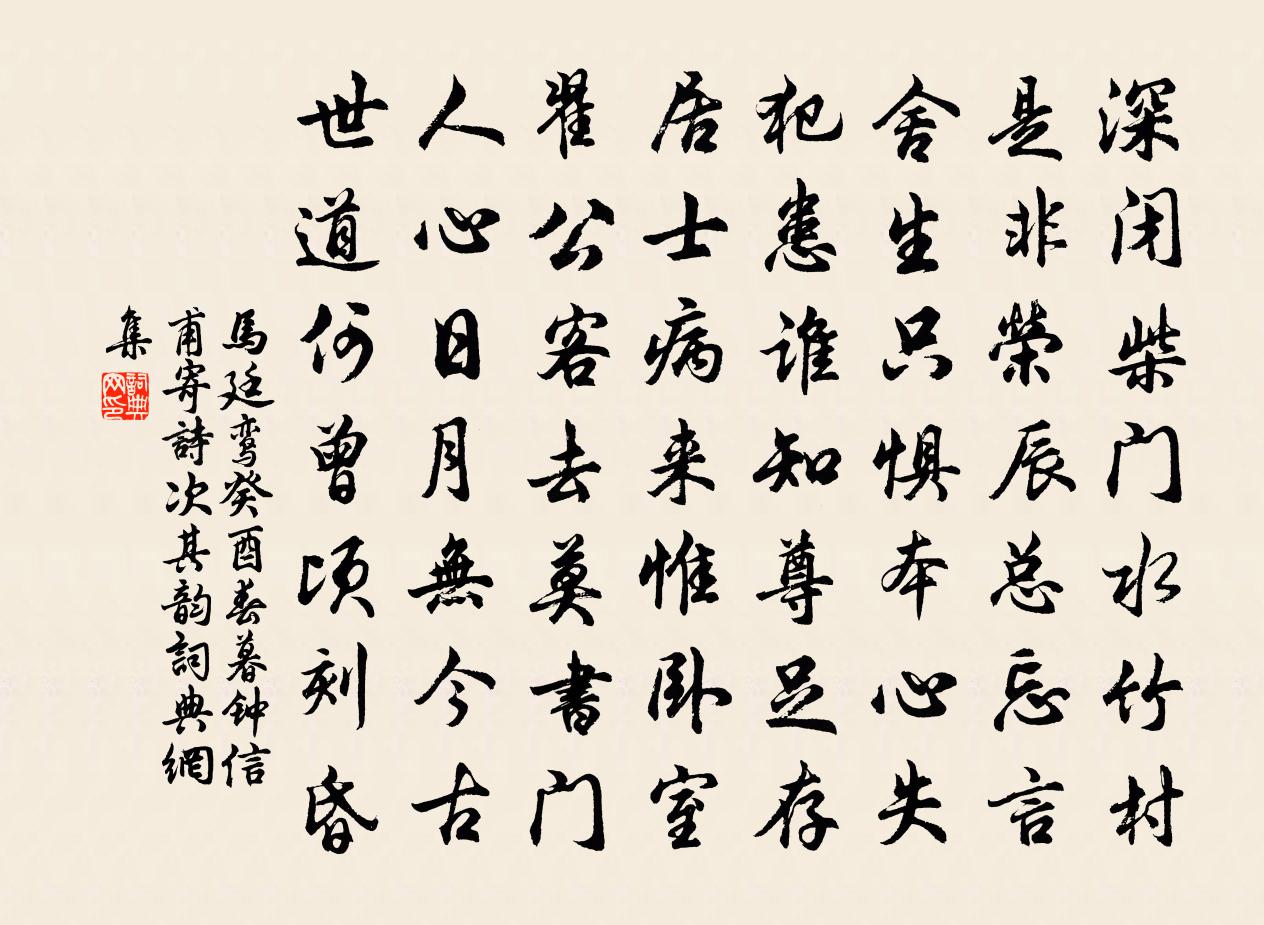 深闭柴门水竹村
是非荣辰总忘言
舍生只惧本心失
犯患谁知尊足存
居士病来惟卧室
翟公客去莫書门
人心日月無今古
世道何曾顷刻昏
馬廷鸾癸酉春暮钟信
甫寄詩次其韵詞典網
集
詞典網印